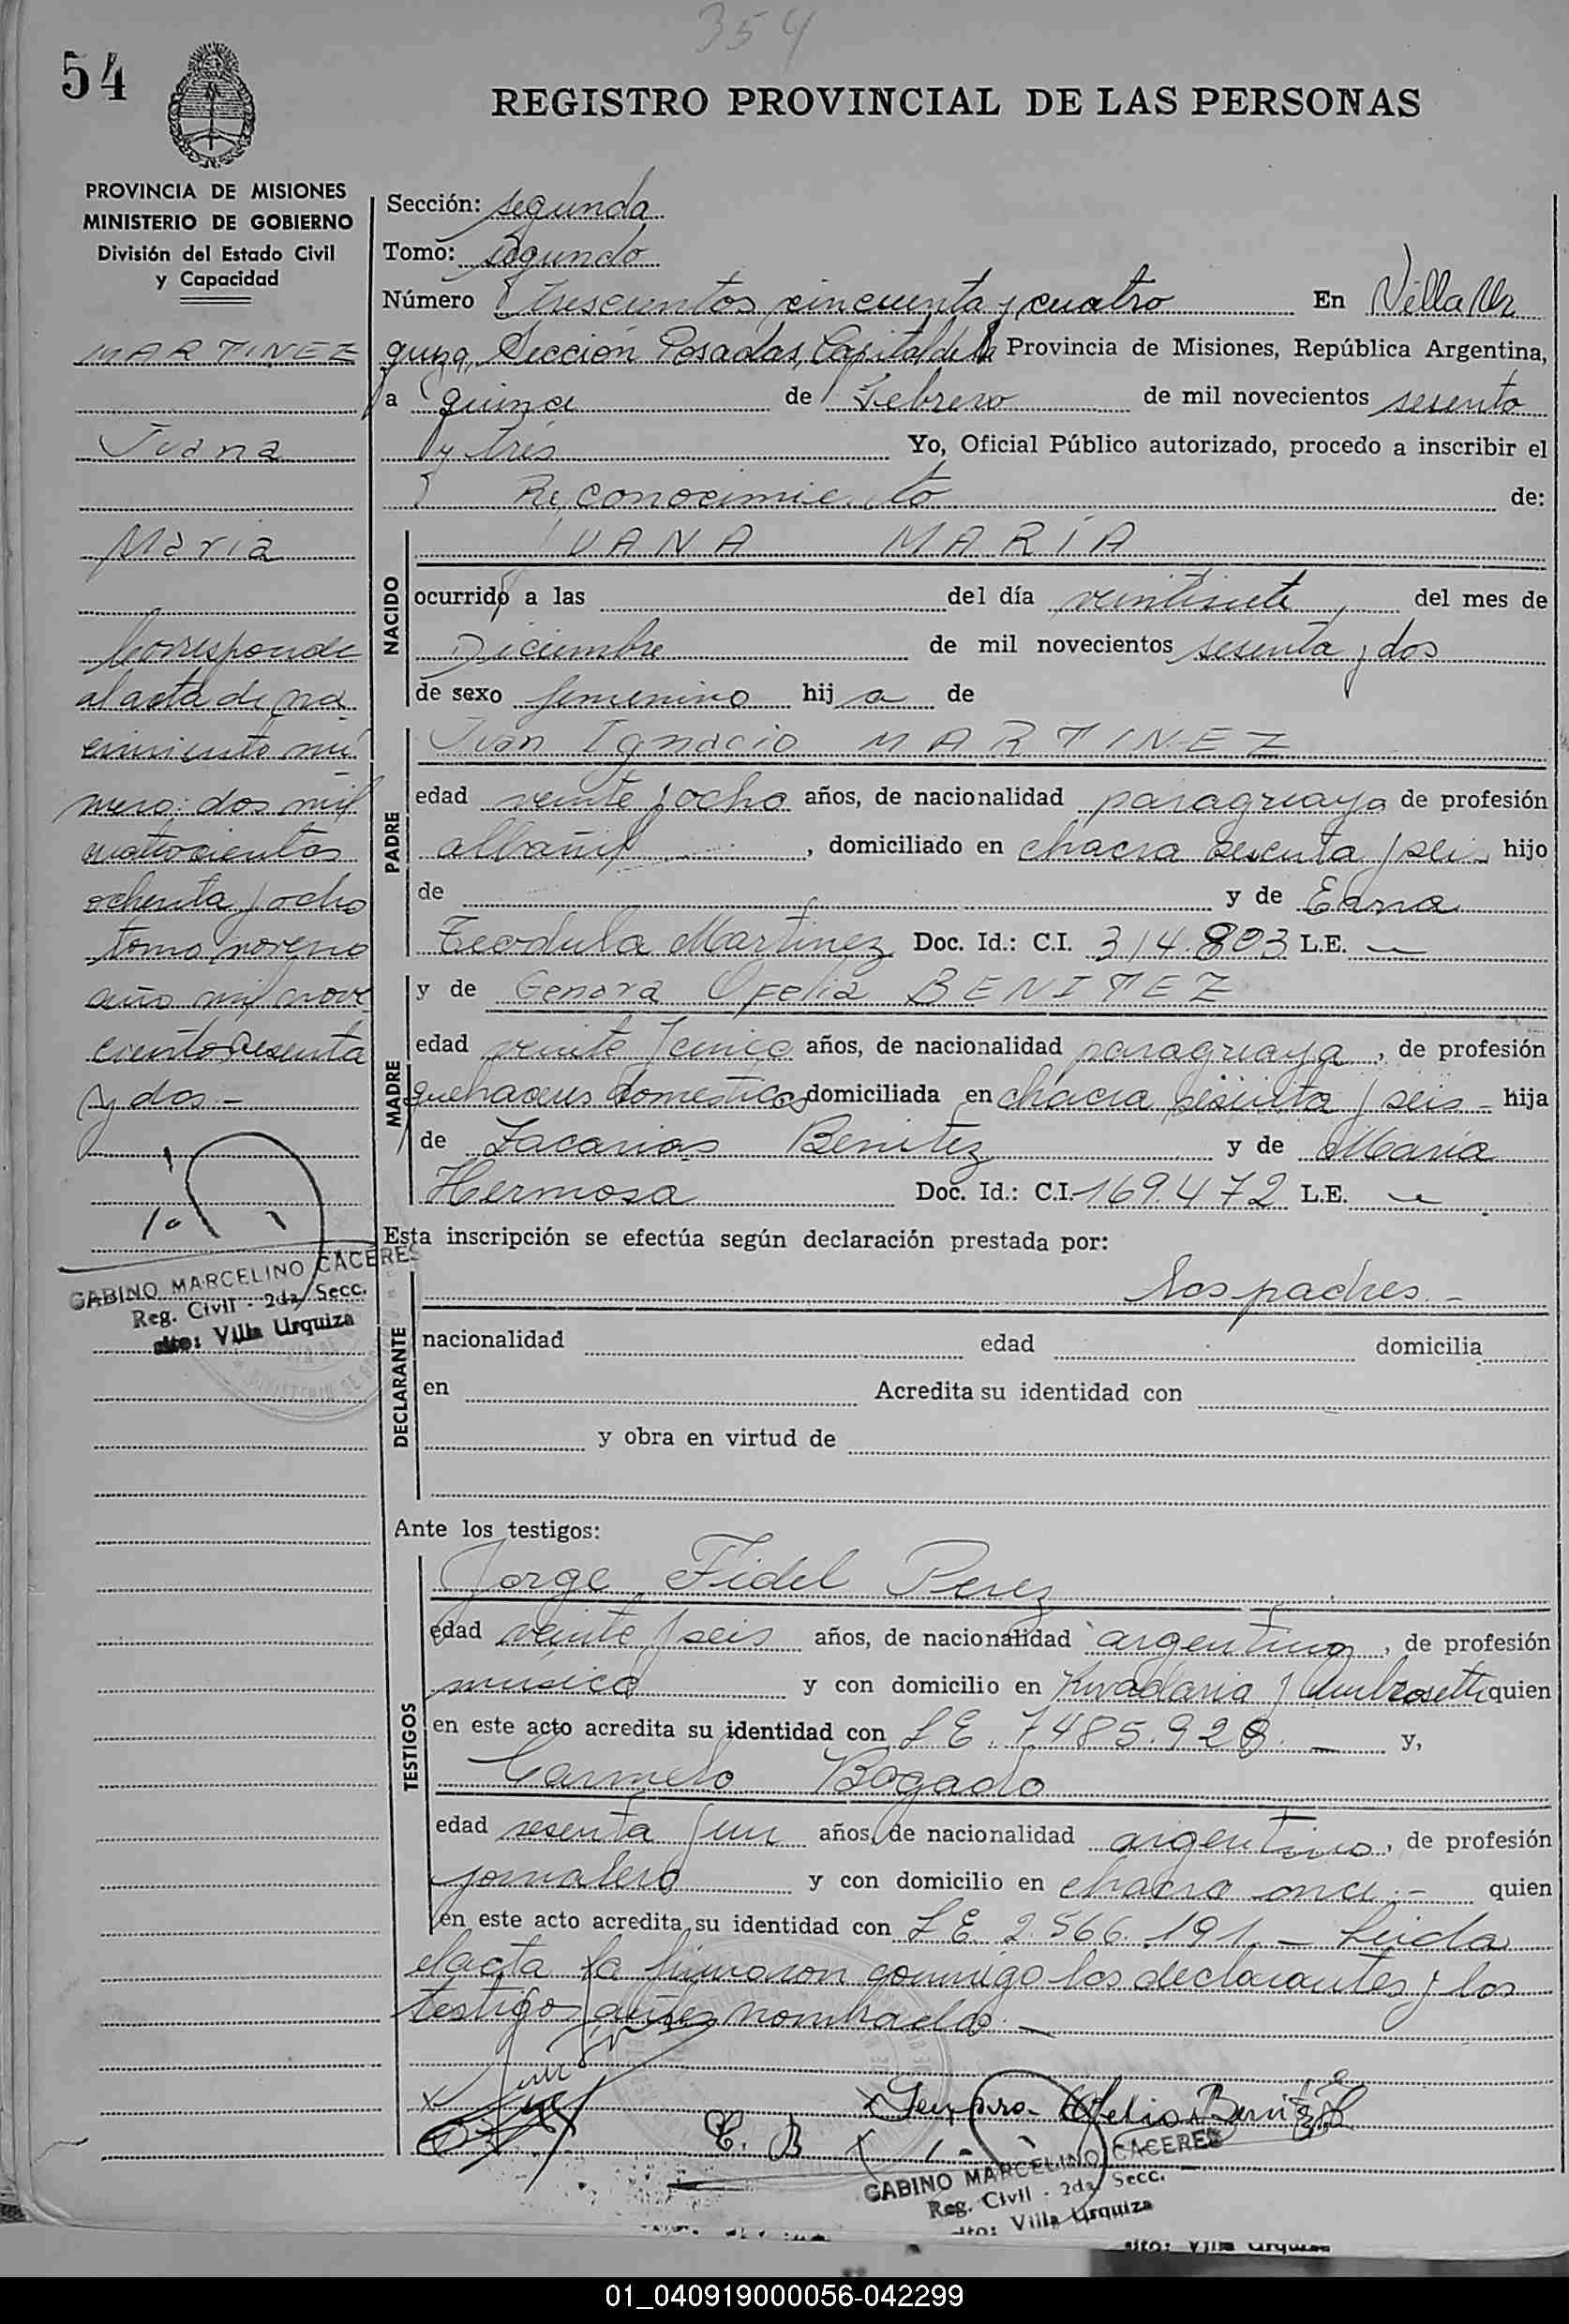 354
54
REGISTRO PROVINCIAL DE LAS PERSONAS
PROVINCIA DE MISIONES
MINISTERIO DE GOBIERNO
División del Estado Civil
y Capacidad
MARTINEZ
Juana
Maria
Corresponde
al acta de na
cimiento nú
mero: dos mil
cuatrocientos
ochenta y ocho
tomo noveno
año mil nove
ciento sesenta
y dos -
GABINO MARCELINO CACERES
Reg. Civil - 2da Secc.
Villa Urquiza
Sección: segunda
Tomo: segundo
Número trescientos cincuenta y cuatro En Villa Ur
quiza, Sección Posadas, Capital de la Provincia de Misiones, República Argentina,
a quince de Febrero de mil novecientos sesenta
y tres Yo, Oficial Público autorizado, procedo a inscribir el
Reconocimiento de:
NACIDO
JUANA MARÍA
ocurrido a las del día veintisiete del mes de
Diciembre de mil novecientos sesenta y dos
de sexo femenino hija de
PADRE
Juan Ignacio MARTINEZ
edad veinte y ocho años, de nacionalidad paraguaya de profesión
albañil, domiciliado en chacra sesenta y seis hijo
de y de
Teodula Martinez Doc. Id.: C.I. 314.803 L.E. —
MADRE
y de Genara Ofelia BENITEZ
edad veinte y cinco años, de nacionalidad paraguaya, de profesión
quehaceres domesticos domiciliada en chacra sesenta y seis - hija
de Zacarias Benitez y de Maria
Hermosa Doc. Id.: C.I. 169.472 L.E. —
Esta inscripción se efectúa según declaración prestada por:
DECLARANTE
los padres -
nacionalidad edad domicilia
en Acredita su identidad con
y obra en virtud de
Ante los testigos:
TESTIGOS
Jorge Fidel Perez
edad veinte y seis años, de nacionalidad argentino, de profesión
musico y con domicilio en Rivadavia y Ambrosetti quien
en este acto acredita su identidad con L E. 7485.928. — y,
Carmelo Bogado
edad sesenta y un años, de nacionalidad argentino, de profesión
jornalero y con domicilio en chacra once.- quien
en este acto acredita su identidad con L E. 2.566.191. — Leida
el acta la firmaron conmigo los declarantes y los
testigos antes nombrados. —
C. B
Ofelia Benitez
GABINO MARCELINO CACERES
Reg. Civil - 2da Secc.
Villa Urquiza
Villa Urquiza
01_040919000056-042299